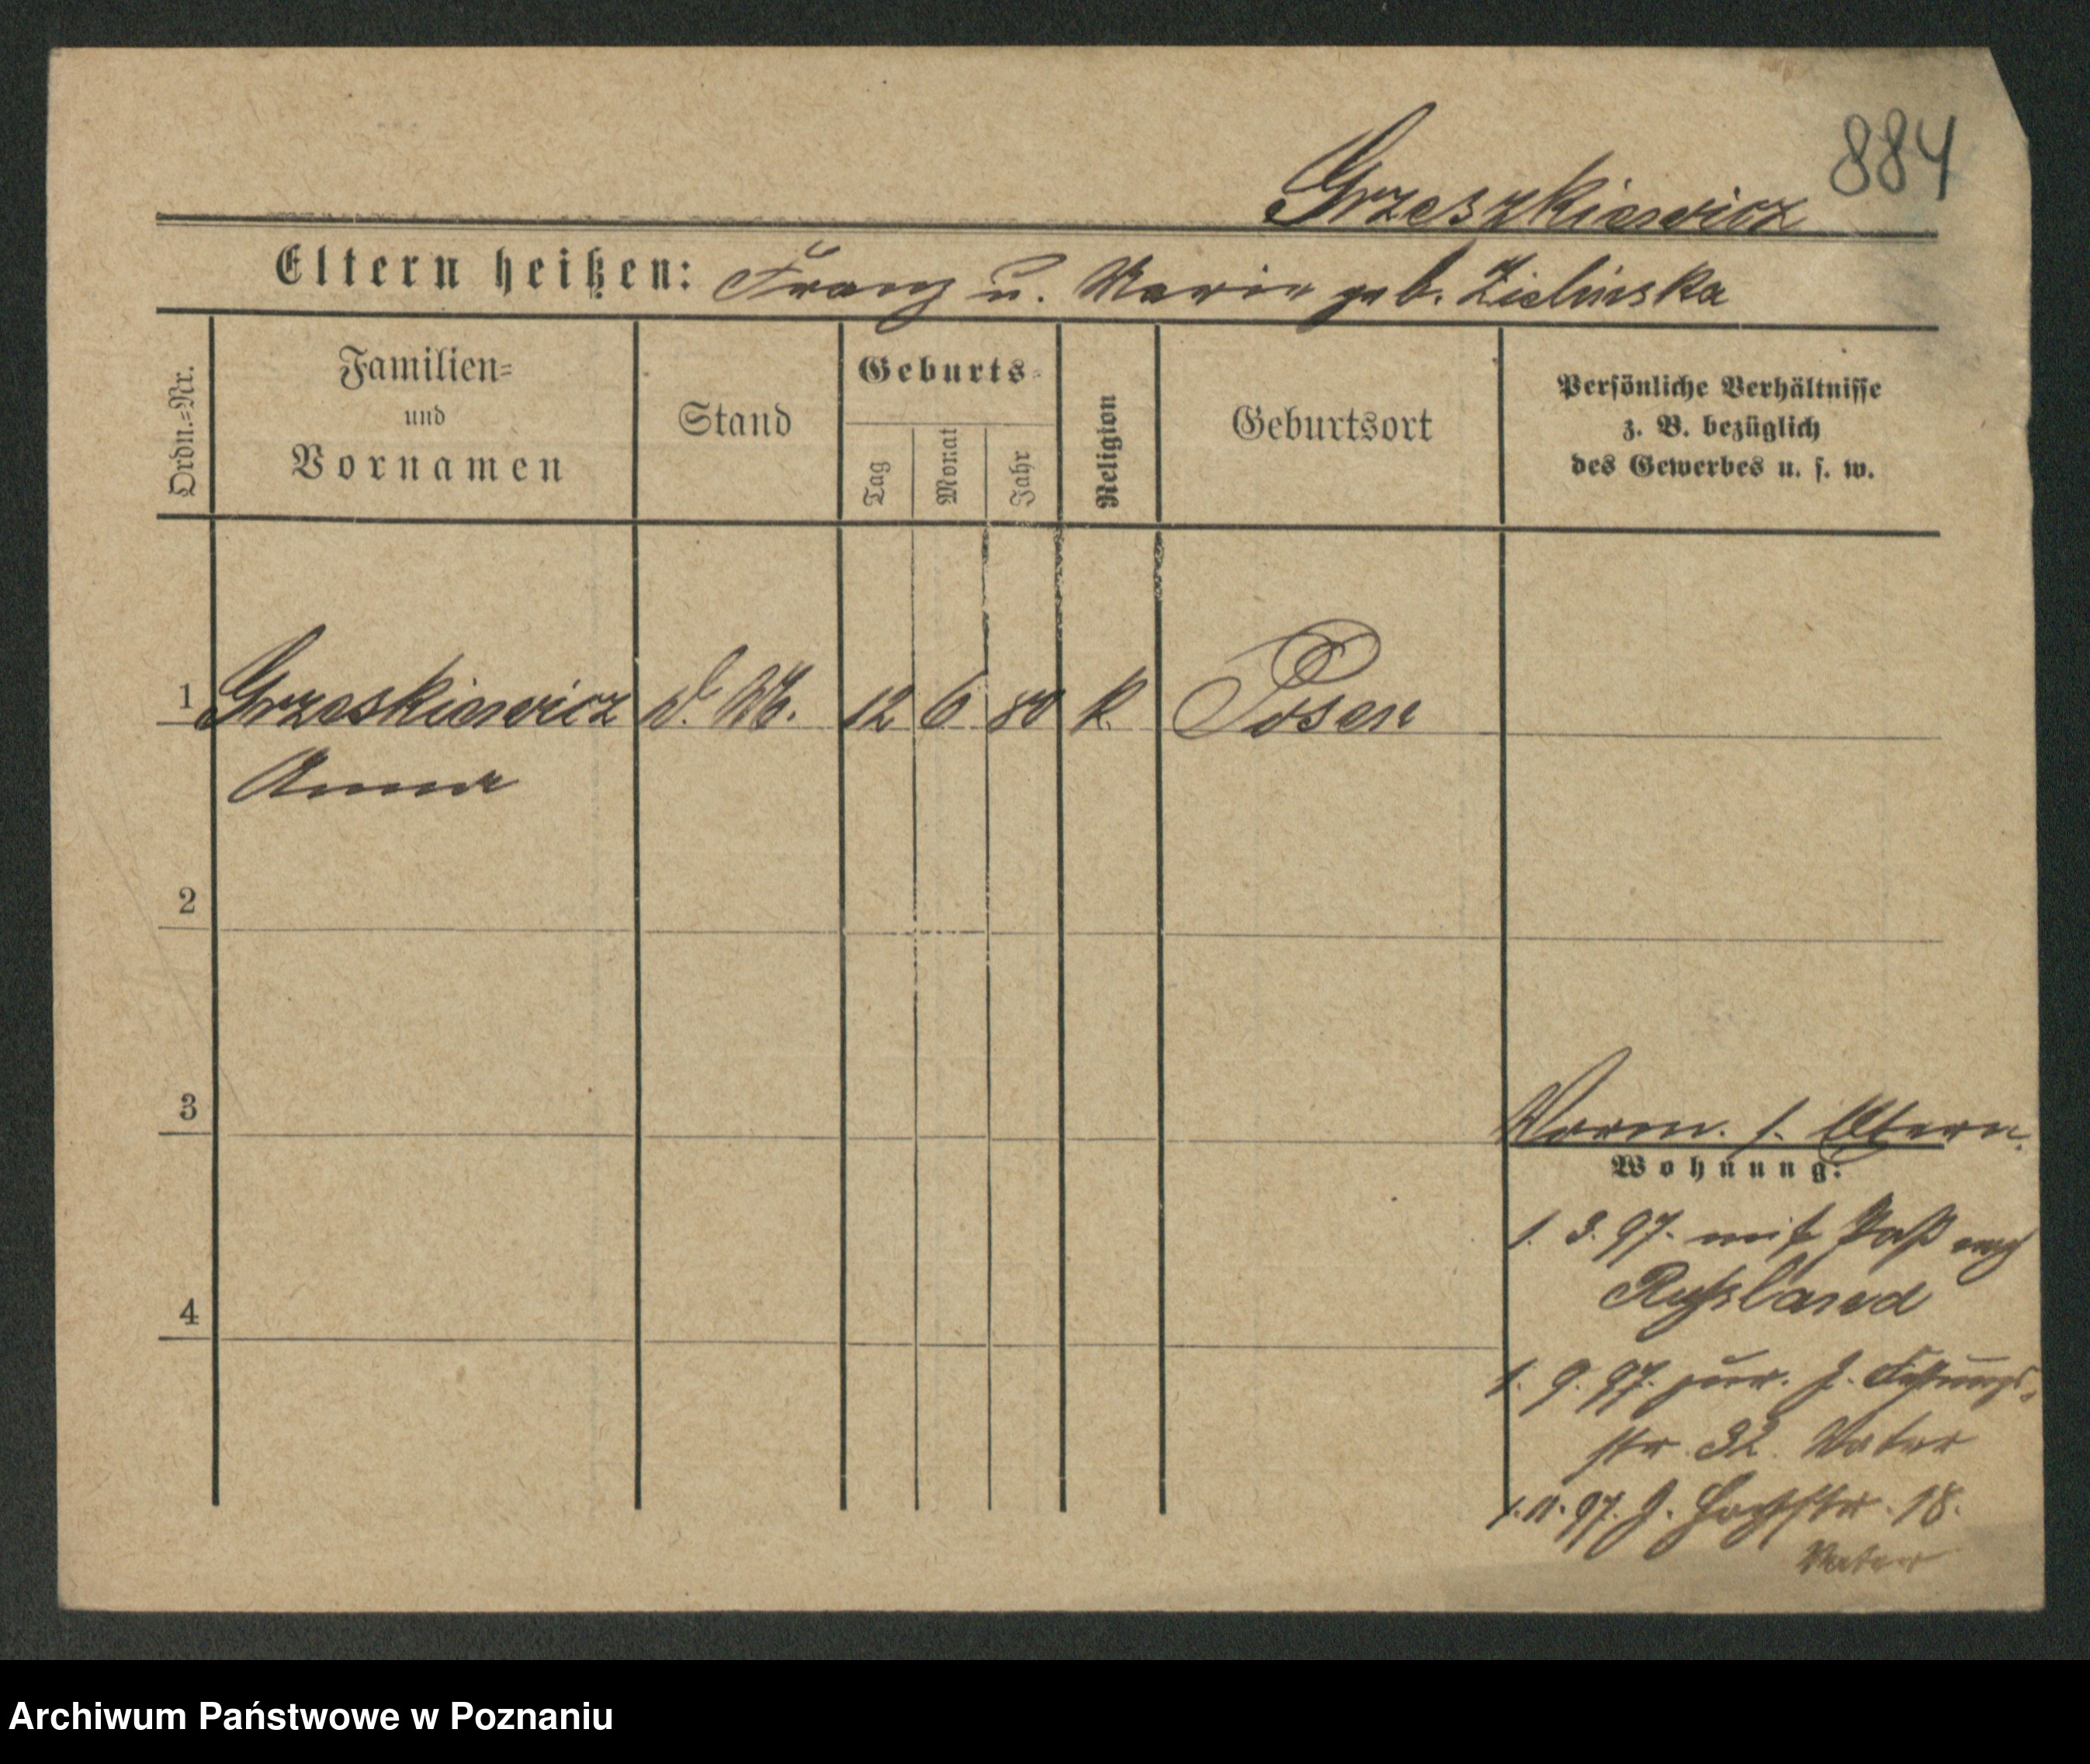 884
Grzeszkiewicz
Eltern heißen: Franz u. Marie geb. Zielinska
Ordn.=Nr.
Familien=
und
Vornamen
Stand
Geburts=
Tag
Monat
Jahr
Religion
Geburtsort
Persönliche Verhältnisse
z. B. bezüglich
des Gewerbes u. s. w.
1 Grzeskiewicz 12 6 80 k. Posen
Anna
2
3
Vorm. s. Eltern.
Wohnung:
4
1. 3. 97. mit Paß nach
Rußland
1. 9. 97. zur. J. Festungs-
str. 32. Vater
1. 11. 97. J. 18.
Vater
Archiwum Państwowe w Poznaniu